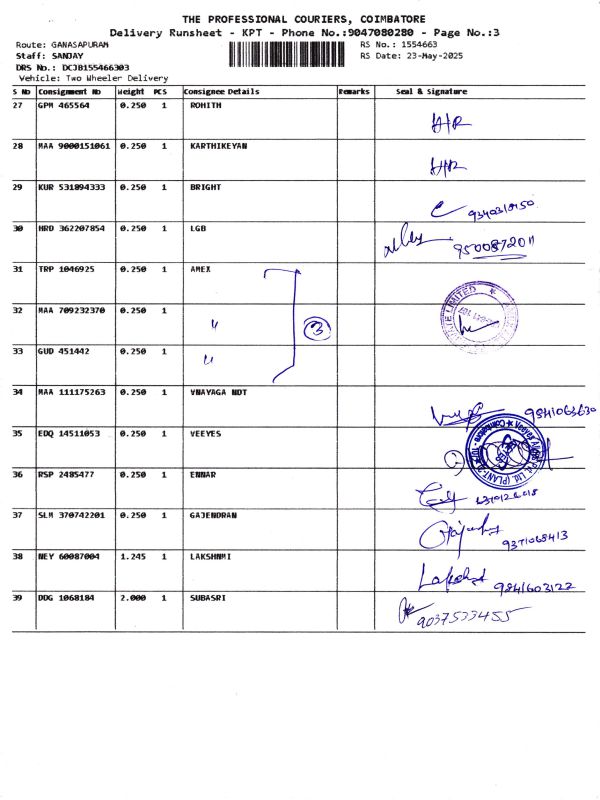 THE PROFESSIONAL COURIERS, COIMBATORE
Delivery Runsheet - KPT - Phone No.:9047080280 - Page No.:3
Route: GANASAPURAM RS No.: 1554663
Staff: SANJAY RS Date: 23-May-2025
DRS No.: DCJB155466303
Vehicle: Two Wheeler Delivery
S No Consignment No Weight PCS Consignee Details Remarks Seal & Signature
27 GPM 465564 0.250 1 ROHITH
28 MAA 9000151061 0.250 1 KARTHIKEYAN
29 KUR 531894333 0.250 1 BRIGHT
30 HRD 362207854 0.250 1 LGB 9500872011
31 TRP 1046925 0.250 1 AMEX
32 MAA 709232370 0.250 1 " 3
33 GUD 451442 0.250 1 "
34 MAA 111175263 0.250 1 VNAYAGA NDT 9841063630
35 EDQ 14511053 0.250 1 VEEYES
36 RSP 2485477 0.250 1 ENNAR
37 SLM 370742201 0.250 1 GAJENDRAN 9371068413
38 NEY 60087004 1.245 1 LAKSHNMI 9841603122
39 DDG 1068184 2.000 1 SUBASRI 9037533455